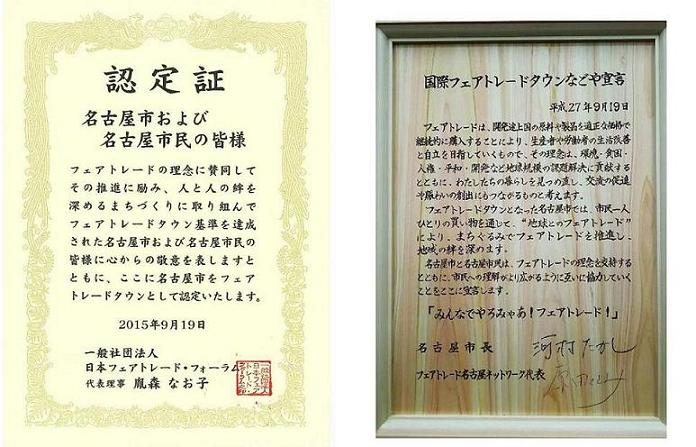 認定証
名古屋市および
名古屋市民の皆様
フェアトレードの理念に賛同して
その推進に励み、人と人の絆を
深めるまちづくりに取り組んで
フェアトレードタウン基準を達成
された名古屋市および名古屋市民の
皆様に心からの敬意を表しますと
ともに、ここに名古屋市をフェア
トレードタウンとして認定いたします。
2015年9月19日
一般社団法人
日本フェアトレード・フォーラム
代表理事 胤森 なお子
一般社団法人
日本フェア
トレード・
フォーラム印
国際フェアトレードタウンなごや宣言
平成27年9月19日
フェアトレードは、開発途上国の原料や製品を適正な価格で
継続的に購入することにより、生産者や労働者の生活改善
と自立を目指していくもので、その理念は、環境・貧困・
人権・平和・開発など地球規模の課題解決に貢献する
とともに、わたしたちの暮らしを見つめ直し、交流の促進
や賑わいの創出にもつながるものと考えます。
フェアトレードタウンとなった名古屋市では、市民一人
ひとりの買い物を通して、“地球とのフェアトレード”
により、まちぐるみでフェアトレードを推進し、
地域の絆を深めます。
名古屋市と名古屋市民は、フェアトレードの理念を支持する
とともに、市民への理解がより広がるように互いに協力していく
ことをここに宣言します。
「みんなでやろみゃあ！フェアトレード！」
名古屋市長 河村たかし
フェアトレード名古屋ネットワーク代表